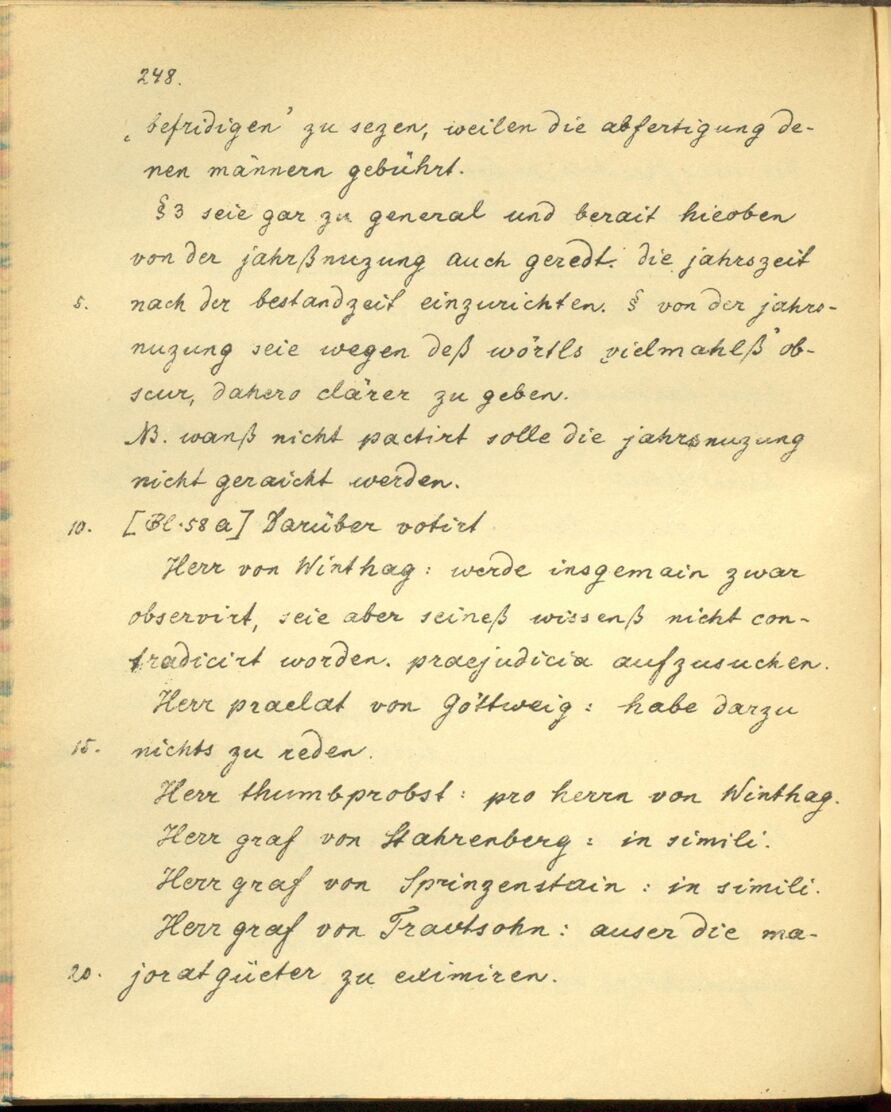 248.
„befridigen’ zu sezen, weilen die abfertigung de-
nen männern gebührt.
§3 seie gar zu general und berait hieoben
von der jahrßnuzung auch geredt. die jahrszeit
5. nach der bestandzeit einzurichten. § von der jahrs-
nuzung seie wegen deß wörtls „vielmahlß” ob-
scur, dahero clärer zu geben.
NB. wanß nicht pactirt solle die jahrsnuzung
nicht geraicht werden.
10. [Bl. 58 a] Darüber votirt
Herr von Winthag: werde insgemain zwar
observirt, seie aber seineß wissenß nicht con-
tradicirt worden. praejudicia aufzusuchen.
Herr praelat von Göttweig: habe darzu
15. nichts zu reden.
Herr thumbprobst: pro herrn von Winthag.
Herr graf von Stahrenberg: in simili.
Herr graf von Sprinzenstain: in simili.
Herr graf von Trautsohn: auser die ma-
20. joratgüeter zu eximiren.